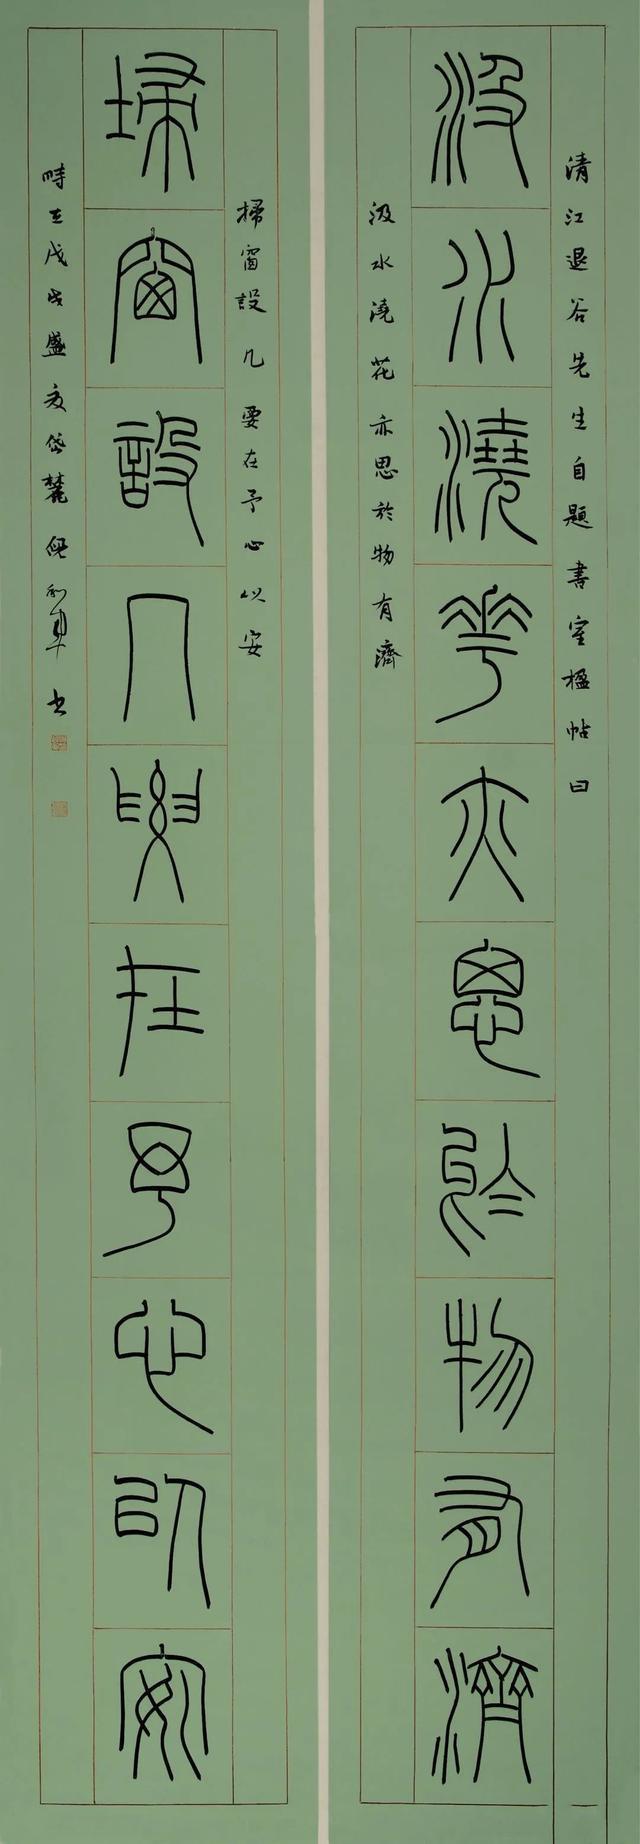 清江退谷先生自題書室楹帖曰
汲水澆花亦思於物有濟
汲水澆花亦思於物有濟
掃窗設几要在予心以安
埽窗設几要在予心以安
時在戊戌盛夏岱麓倪和軍書